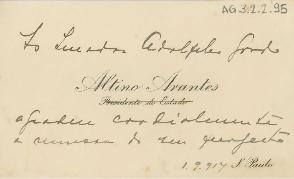 AG3.2.2.95
Ao Senador Adolpho Gordo
Altino Arantes
Presidente do Estado
agradece cordialmente
a remessa do seu projecto
1.9.917 S. Paulo